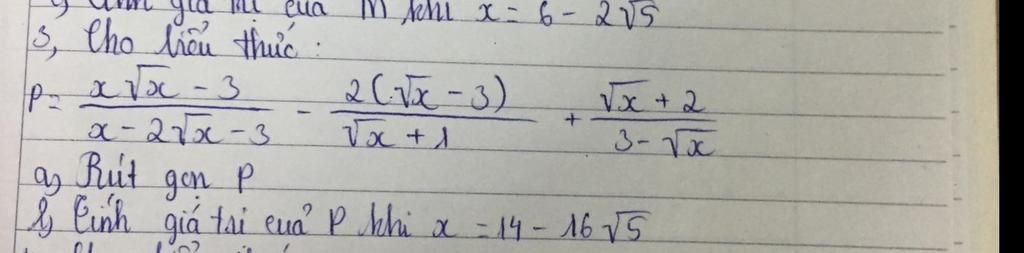 giá trị của M khi x = 6 - 2√5
3, Cho biểu thức:
P = (x√x - 3)/(x - 2√x - 3) - (2(√x - 3))/(√x + 1) + (√x + 2)/(3 - √x)
a, Rút gọn P
b, Tính giá trị của P khi x = 14 - 16√5